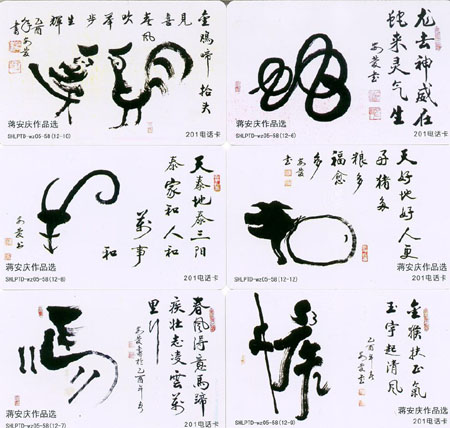 金鸡啼抬头
见
喜
春风
吹
举
步
生
辉
乙酉
年安庆书
蒋安庆作品选
SHLPTD-wz05-58(12-10)
201电话卡
龙去神威在
蛇来灵气生
安庆书
蒋安庆作品选
SHLPTD-wz05-58(12-6)
201电话卡
天泰地泰三阳
泰家和人和
萬事
和
安庆书
蒋安庆作品选
SHLPTD-wz05-58(12-8)
201电话卡
天好地好人更
好猪多
粮多
福愈
多
安庆书
蒋安庆作品选
SHLPTD-wz05-58(12-12)
201电话卡
春風得意馬蹄
疾壮志凌雲萬
里行
安庆書於乙酉年
蒋安庆作品选
SHLPTD-wz05-58(12-7)
201电话卡
金猴扶正氣
玉宇起清风
乙酉年
安庆书
蒋安庆作品选
SHLPTD-wz05-58(12-9)
201电话卡